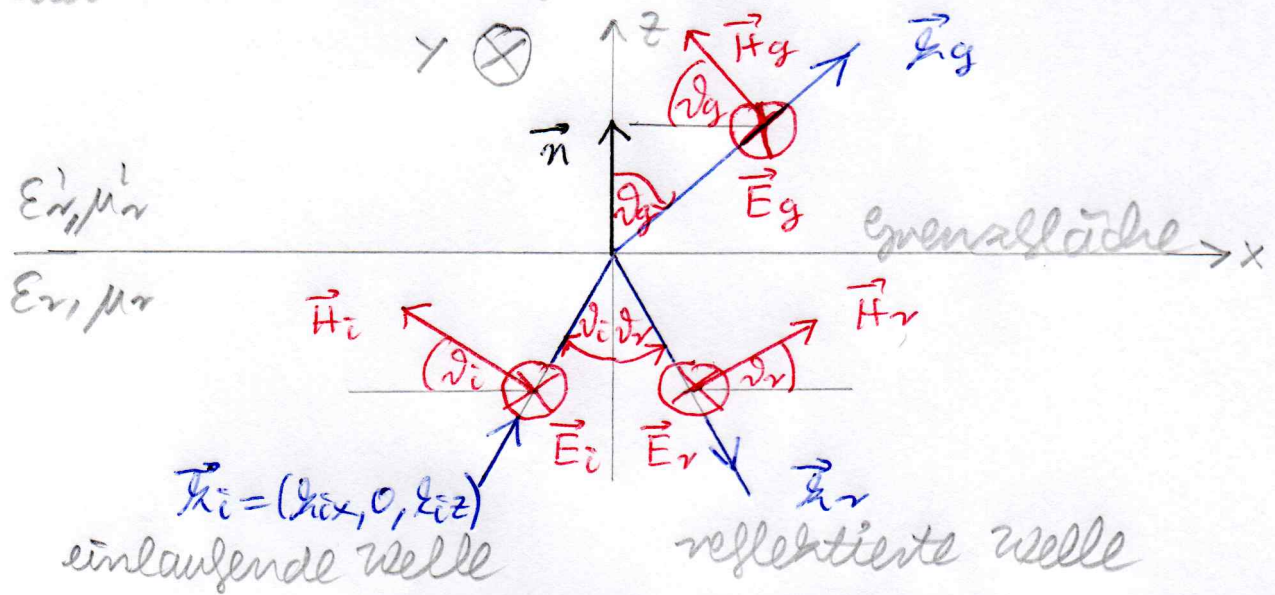 Y z H⃗g k⃗g
n⃗ ϑg
ϑg E⃗g
ε'r, μ'r Grenzfläche x
εr, μr
H⃗i ϑi ϑr H⃗r
ϑi ϑr
E⃗i E⃗r
k⃗i = (kix, 0, kiz) k⃗r
einlaufende Welle reflektierte Welle